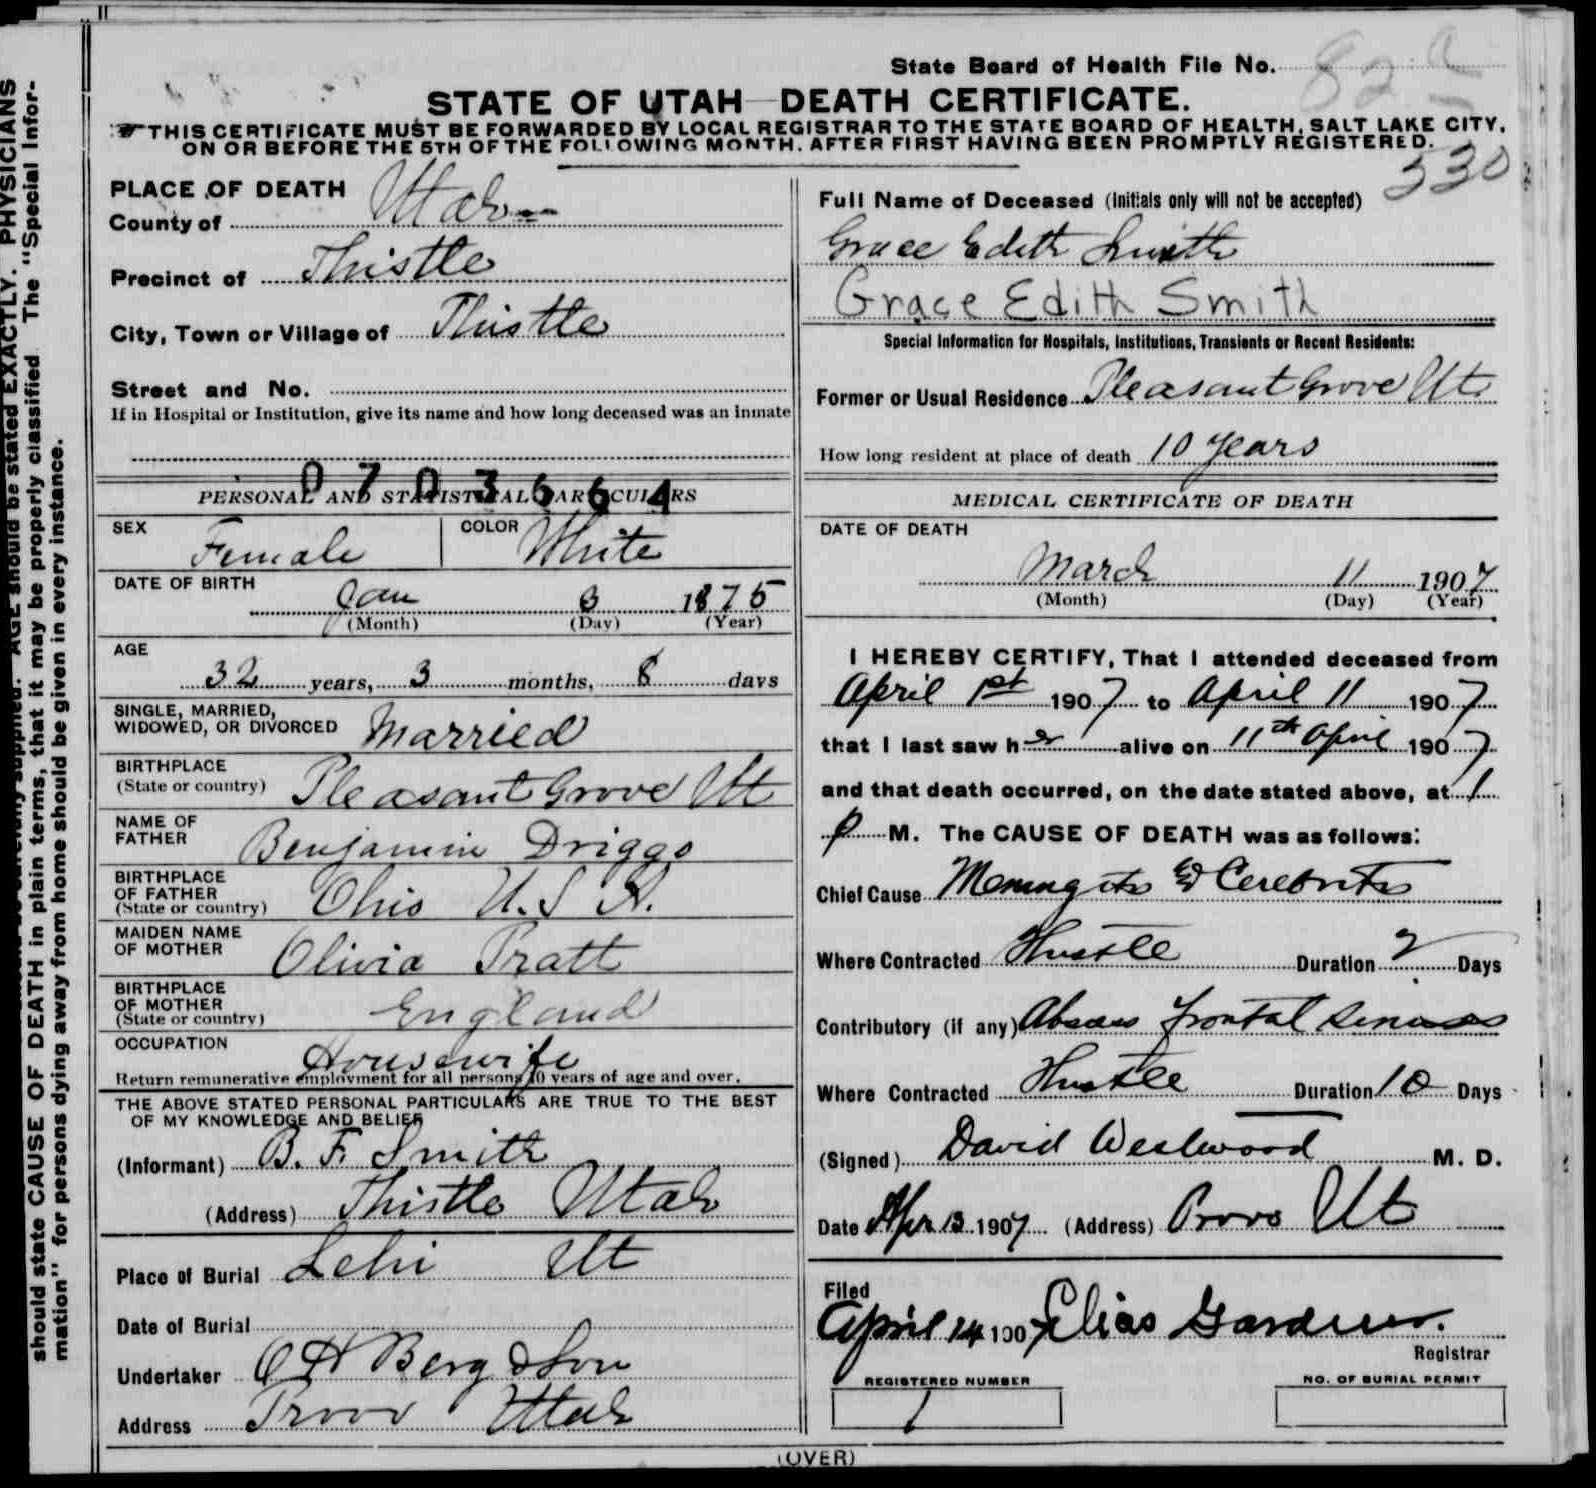 State Board of Health File No. 82
STATE OF UTAH—DEATH CERTIFICATE.
THIS CERTIFICATE MUST BE FORWARDED BY LOCAL REGISTRAR TO THE STATE BOARD OF HEALTH, SALT LAKE CITY,
ON OR BEFORE THE 5TH OF THE FOLLOWING MONTH, AFTER FIRST HAVING BEEN PROMPTLY REGISTERED.
530
PLACE OF DEATH
County of Utah
Precinct of Thistle
City, Town or Village of Thistle
Street and No.
If in Hospital or Institution, give its name and how long deceased was an inmate
0703664
PERSONAL AND STATISTICAL PARTICULARS
SEX Female COLOR White
DATE OF BIRTH
Jan 3 1875
(Month) (Day) (Year)
AGE
32 years, 3 months, 8 days
SINGLE, MARRIED,
WIDOWED, OR DIVORCED Married
BIRTHPLACE
(State or country) Pleasant Grove Ut
NAME OF
FATHER Benjamin Driggs
BIRTHPLACE
OF FATHER
(State or country) Ohio U.S A.
MAIDEN NAME
OF MOTHER Olivia Pratt
BIRTHPLACE
OF MOTHER
(State or country) England
OCCUPATION
Housewife
Return remunerative employment for all persons 10 years of age and over.
THE ABOVE STATED PERSONAL PARTICULARS ARE TRUE TO THE BEST
OF MY KNOWLEDGE AND BELIEF
(Informant) B. F. Smith
(Address) Thistle Utah
Place of Burial Lehi Ut
Date of Burial
Undertaker O H Berg & Son
Address Provo Utah
Full Name of Deceased (Initials only will not be accepted)
Grace Edith Smith
Grace Edith Smith
Special Information for Hospitals, Institutions, Transients or Recent Residents:
Former or Usual Residence Pleasant Grove Ut.
How long resident at place of death 10 years
MEDICAL CERTIFICATE OF DEATH
DATE OF DEATH
March 11 1907
(Month) (Day) (Year)
I HEREBY CERTIFY, That I attended deceased from
April 1st 1907 to April 11 1907
that I last saw her alive on 11th April 1907
and that death occurred, on the date stated above, at 1
P M. The CAUSE OF DEATH was as follows:
Chief Cause Meningitis & Cerebritis
Where Contracted Thistle Duration 2 Days
Contributory (if any) Abscess frontal sinuses
Where Contracted Thistle Duration 10 Days
(Signed) David Westwood M. D.
Date Apr 13 1907 (Address) Provo Ut
Filed
April 14 1907 Elias Gardner.
Registrar
REGISTERED NUMBER
1
NO. OF BURIAL PERMIT
(OVER)
AGE should be stated EXACTLY. PHYSICIANS
should state CAUSE OF DEATH in plain terms, that it may be properly classified The "Special Infor-
mation" for persons dying away from home should be given in every instance.